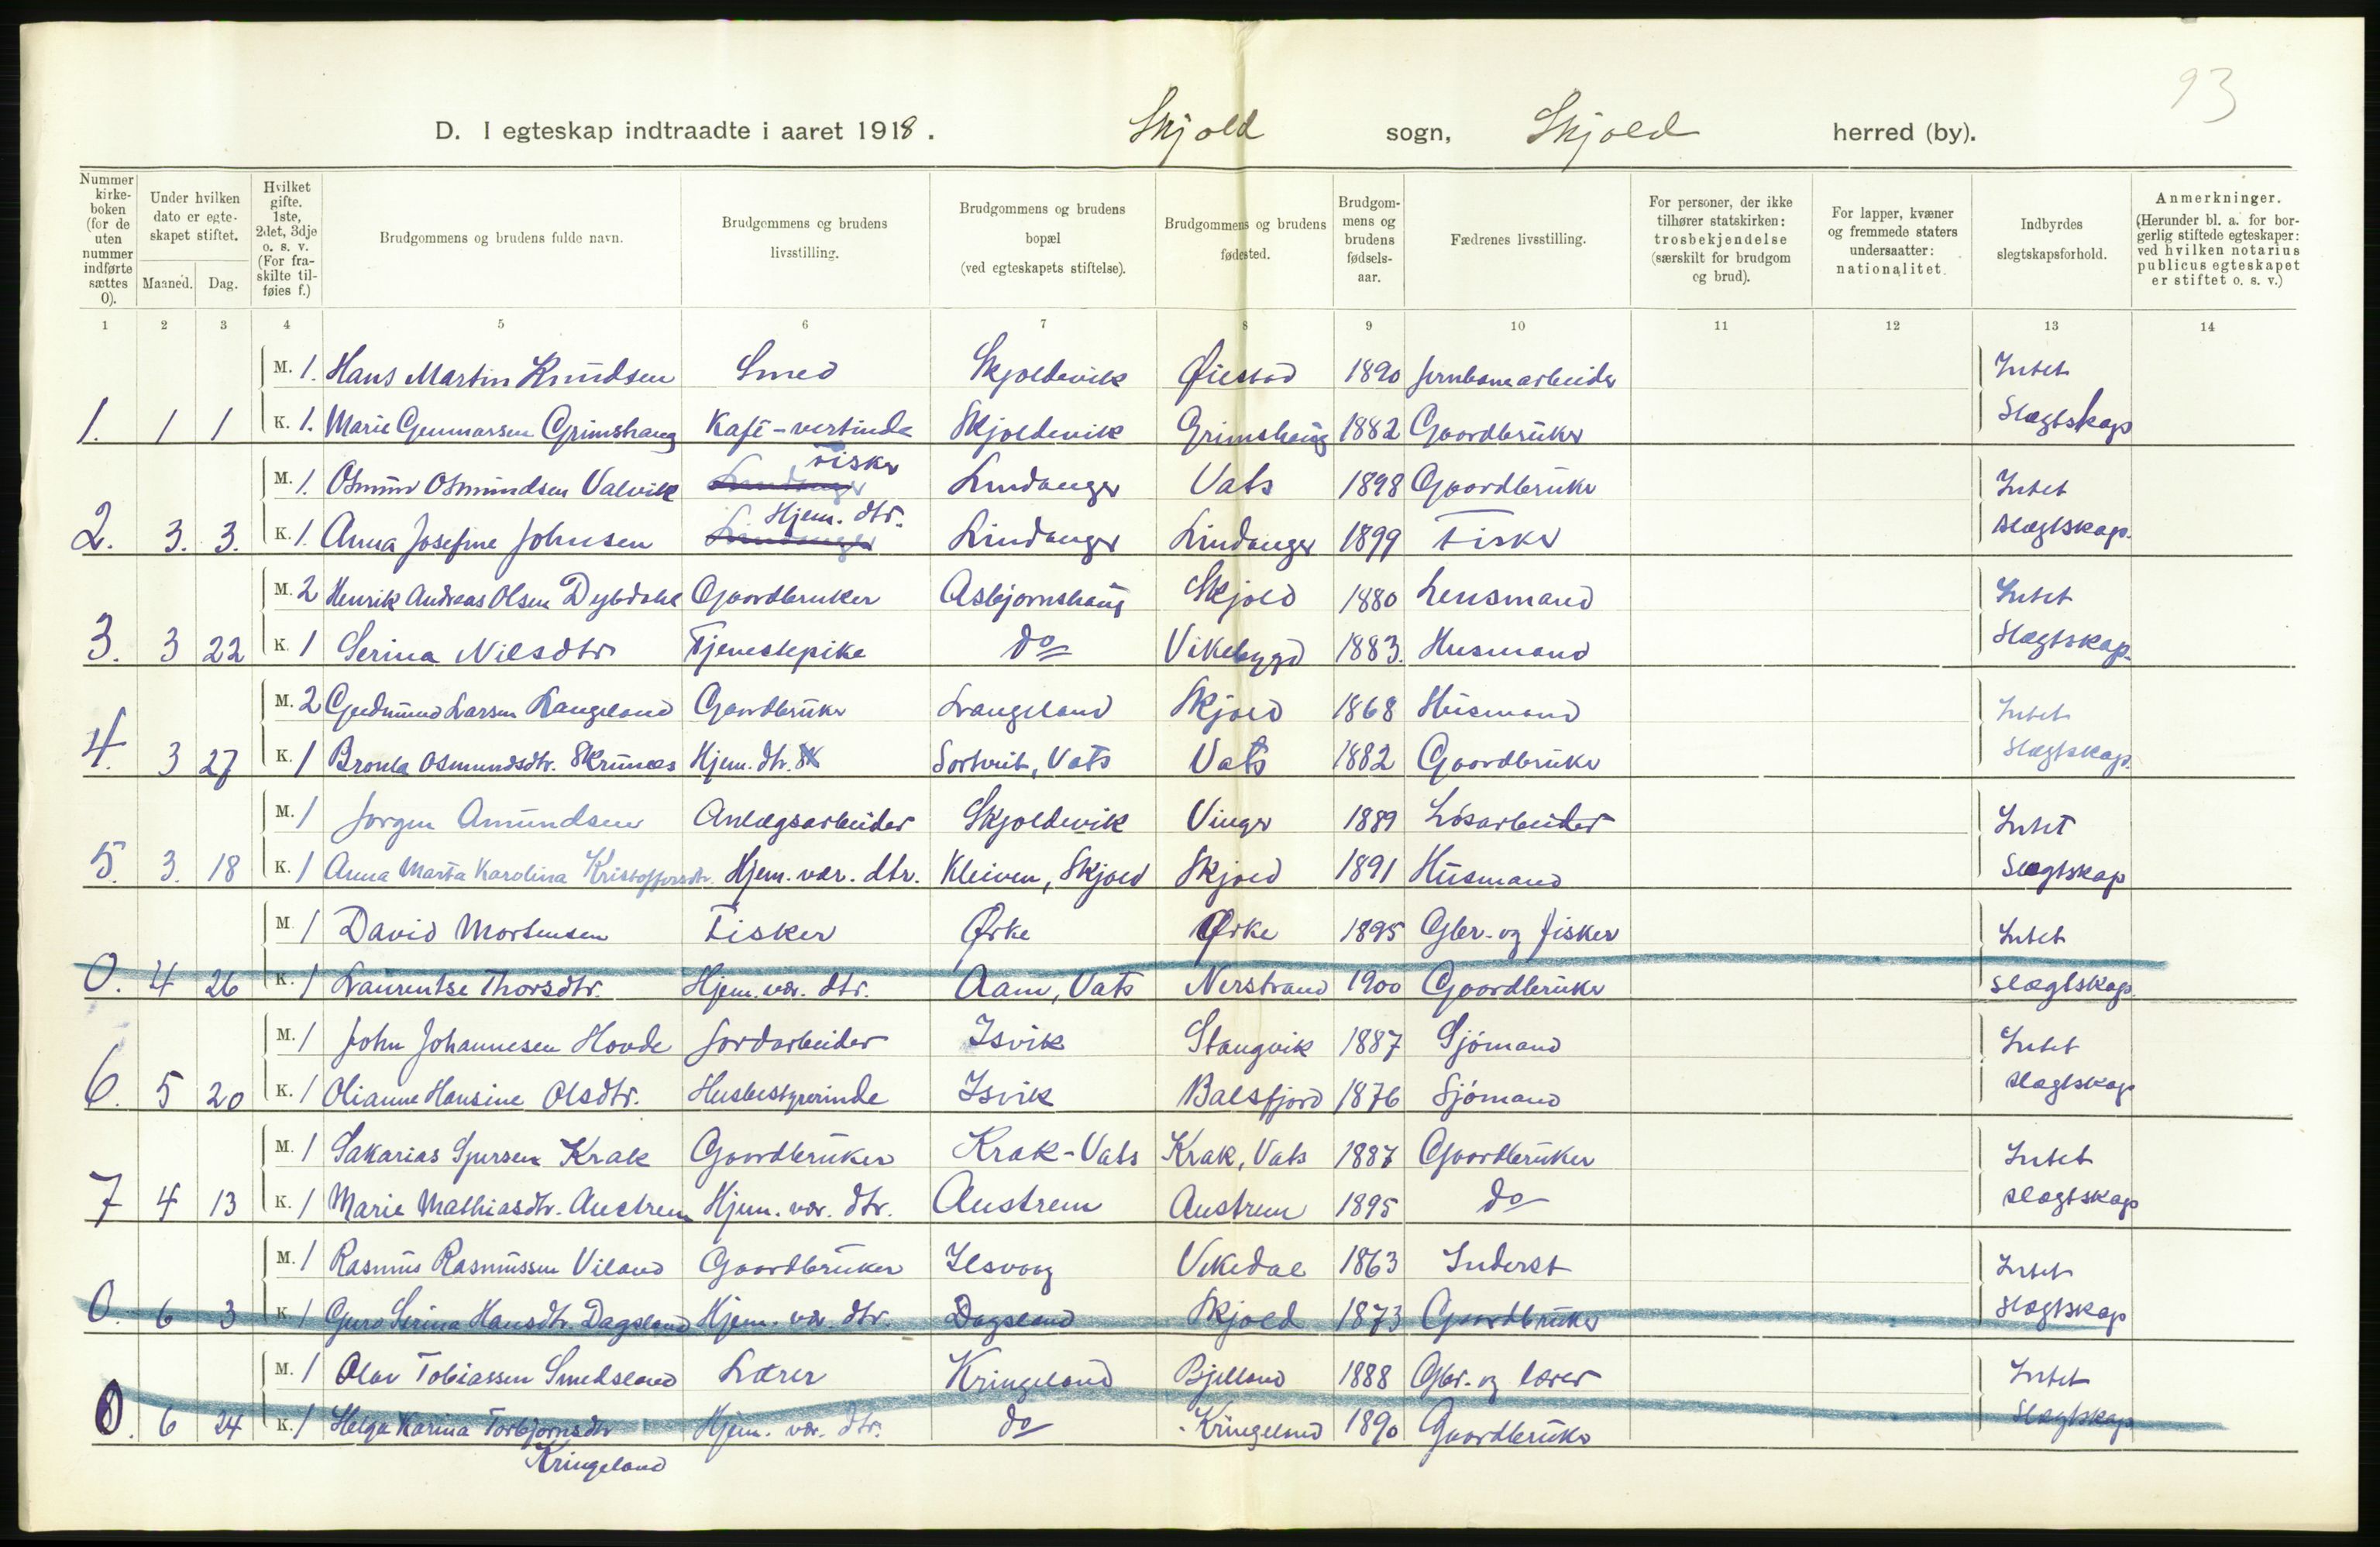 93
D. I egteskap indtraadte i aaret 1918. Skjold sogn, Skjold herred (by).
Nummer kirke-boken (for de uten nummer indførte sættes 0). | Under hvilken dato er egte-skapet stiftet. Maaned. Dag. | Hvilket gifte. 1ste, 2det, 3dje o. s. v. (For fra-skilte til-føies f.) | Brudgommens og brudens fulde navn. | Brudgommens og brudens livsstilling. | Brudgommens og brudens bopæl (ved egteskapets stiftelse). | Brudgommens og brudens fødested. | Brudgom-mens og brudens fødsels-aar. | Fædrenes livsstilling. | For personer, der ikke tilhører statskirken: trosbekjendelse (særskilt for brudgom og brud). | For lapper, kvæner og fremmede staters undersaatter: nationalitet. | Indbyrdes slegtskapsforhold. | Anmerkninger. (Herunder bl. a. for bor-gerlig stiftede egteskaper: ved hvilken notarius publicus egteskapet er stiftet o. s. v.)
1 2 3 4 5 6 7 8 9 10 11 12 13 14
M. 1. Hans Martin Knudsen Smed Skjoldevik Øiestad 1890 Jernbanearbeider Intet
1. 1 1 K. 1. Marie Gunnarsen Grimshaug Kafé-vertinde Skjoldevik Grimshaug 1882 Gaardbruker Slægtskap
M. 1. Osmun Osmundsen Valvik Fisker Lindanger Vats 1898 Gaardbruker Intet
2. 3. 3. K. 1. Anna Josefine Johnsen Hjem. dtr. Lindanger Lindanger 1899 Fisker Slægtskap.
M. 2 Henrik Andreas Olsen Dybdahl Gaardbruker Asbjørnshaug Skjold 1880 Lensmand Intet
3. 3 22 K. 1 Serina Nilsdtr Tjenestepike do Vikebygd 1883. Husmand Slægtskap.
M. 2 Gudmund Larsen Langeland Gaardbruker Langeland Skjold 1868 Husmand Intet
4. 3 27 K. 1 Osmundsdtr. Hjem. dtr. Sørtveit, Vats Vats 1882 Gaardbruker Slægtskap.
M. 1 Jørgen Amundsen Anlægsarbeider Skjoldevik Vinger 1889 Løsarbeider Intet
5. 3. 18 K. 1 Anna Marta Karolina Kristoffersdtr. Hjem. vær. dtr. Kleiven, Skjold Skjold 1891 Husmand Slægtskap
M. 1 David Mortensen Fisker Ørke Ørke 1895 Gbr. og fisker Intet
0. 4 26 K. 1 Laurentse Thorsdtr. Hjem. vær. dtr. Aam, Vats Nerstrand 1900 Gaardbruker Slægtskap.
M. 1 John Johannesen Hovde Jordarbeider Isvik Stangvik 1887 Sjømand Intet
6. 5 20 K. 1 Olianne Hansine Olsdtr. Husbestyrerinde Isvik Balsfjord 1876 Sjømand Slægtskap
M. 1 Sakarias Sjursen Krak Gaardbruker Krak-Vats Krak, Vats 1887 Gaardbruker Intet
7 4 13 K. 1 Marie Mathiasdtr. Austrem Hjem. vær. dtr. Austrem Austrem 1895 do Slægtskap
M. 1 Rasmus Rasmussen Viland Gaardbruker Ilsvaag Vikedal 1863 Inderst Intet
0. 6 3 K. 1 Guro Serina Hansdtr. Dagsland Hjem. vær. dtr. Dagsland Skjold 1873 Gaardbruker Slægtskap
M. 1 Olav Tobiassen Smedsland Lærer Kringeland Bjelland 1888 Gbr. og lærer Intet
0. 6 24 K. 1 Helga Karina Torbjørnsdtr Hjem. vær. dtr. do Kringeland 1890 Gaardbruker Slægtskap
Kringeland